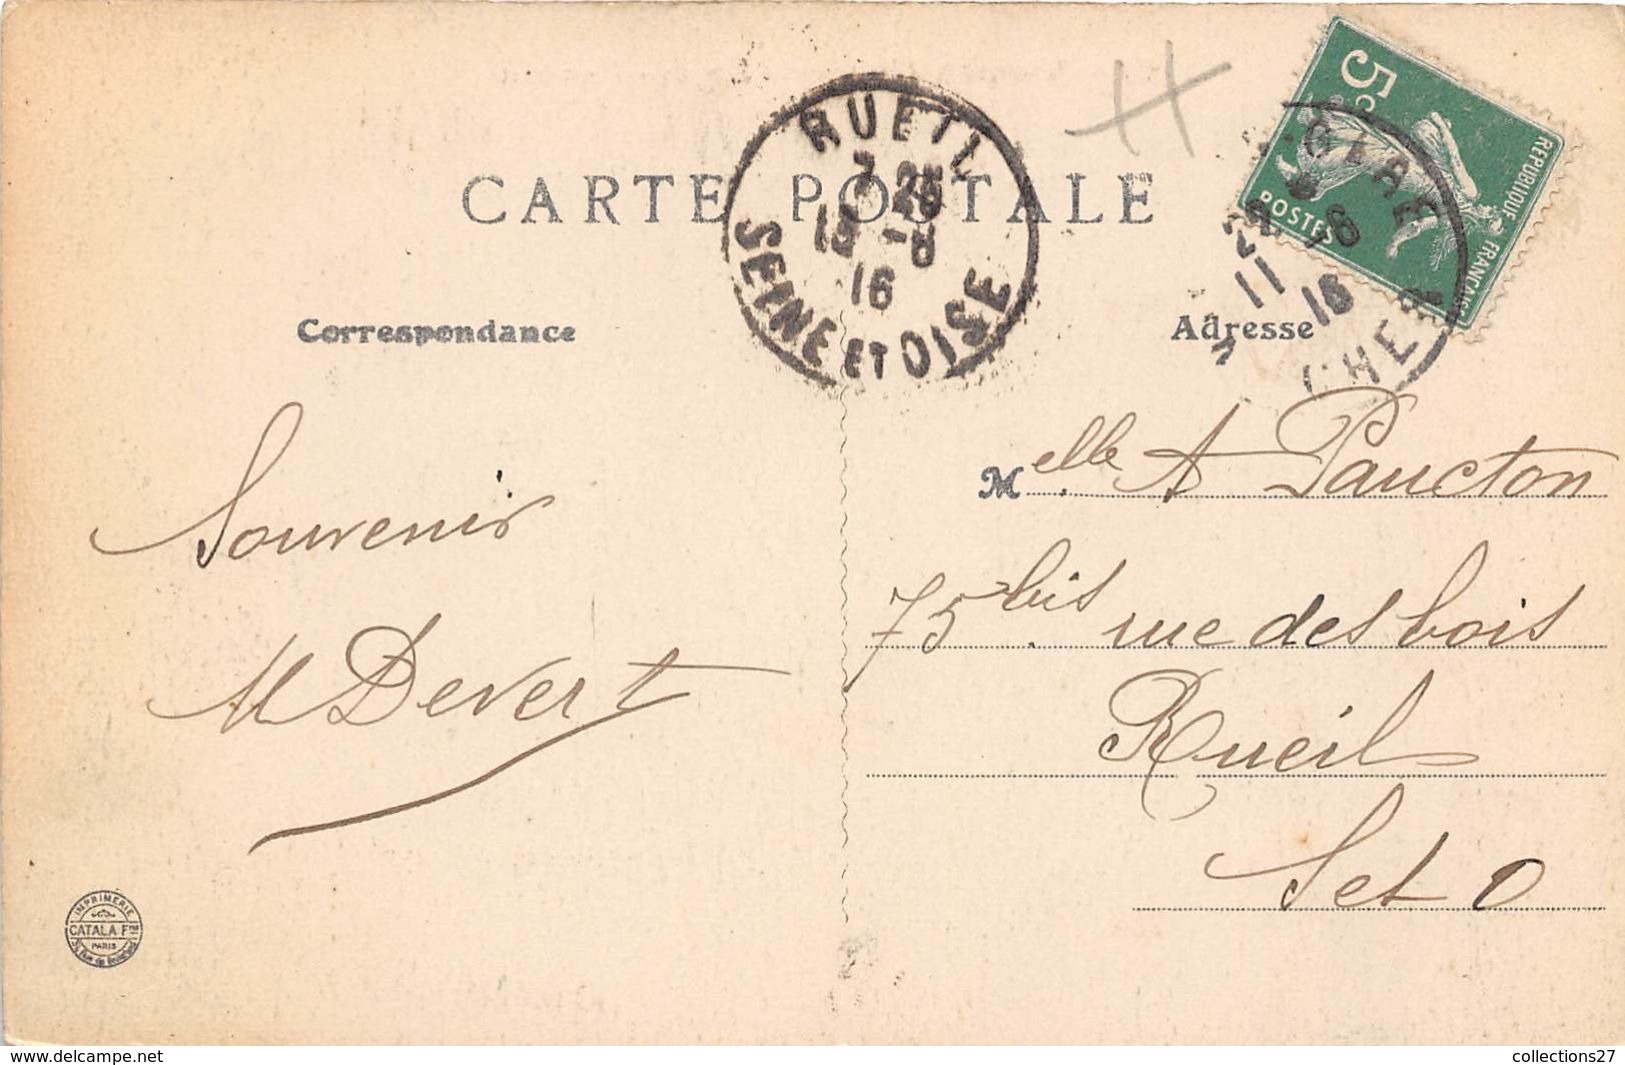 CARTE POSTALE
RUEIL
7 25
13 -8
16
SEINE ET OISE
5c
REPUBLIQUE FRANÇAISE
POSTES
11
16
CHE
Correspondance
Adresse
Souvenir
M Devert
Melle A Paucton
75 bis rue des bois
Rueil
S et O
IMPRIMERIE
CATALA Fres
PARIS
collections27